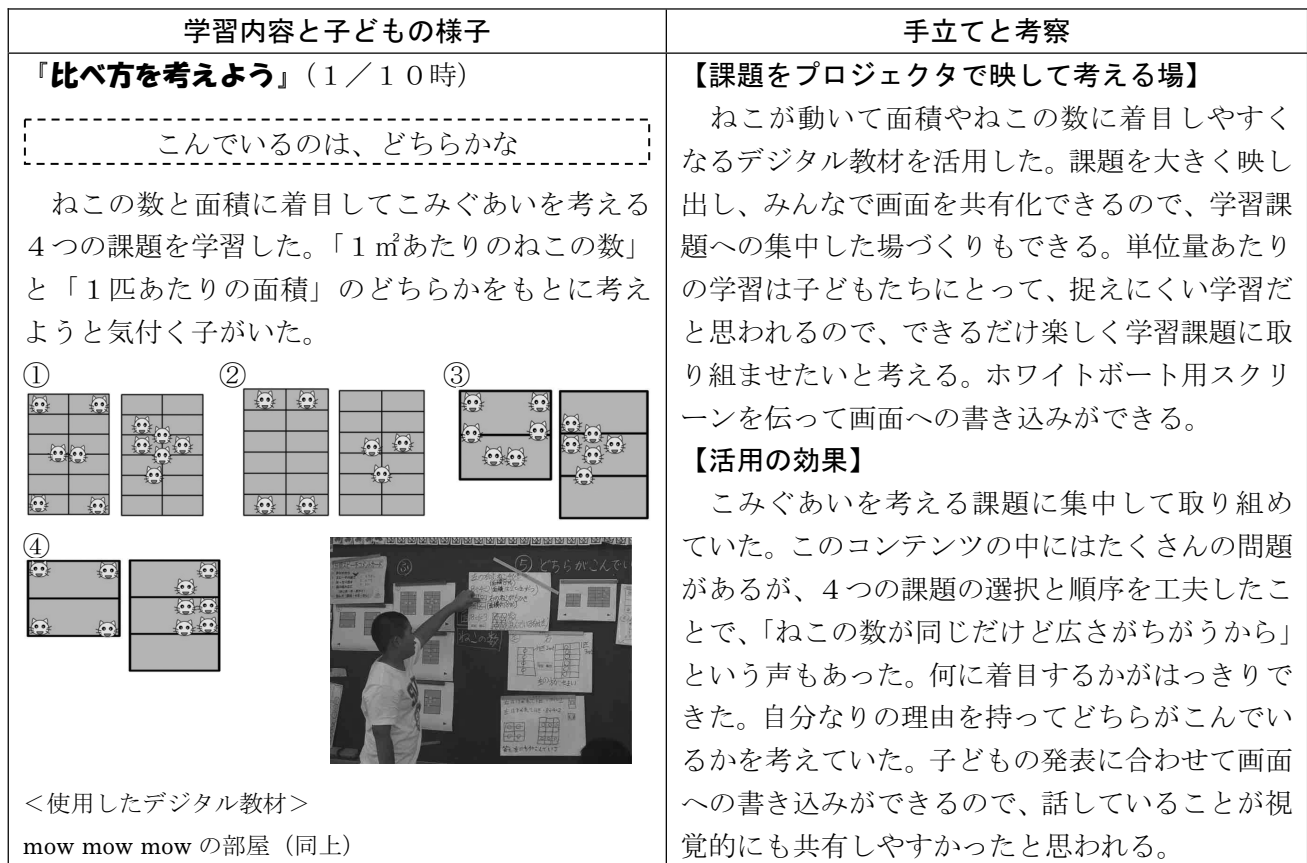 学習内容と子どもの様子
『比べ方を考えよう』（１／１０時）
こんでいるのは、どちらかな
ねこの数と面積に着目してこみぐあいを考える
４つの課題を学習した。「１㎡あたりのねこの数」
と「１匹あたりの面積」のどちらかをもとに考え
ようと気付く子がいた。
①
②
③
④
どちらがこんでい
ねこの数
＜使用したデジタル教材＞
mow mow mow の部屋（同上）
手立てと考察
【課題をプロジェクタで映して考える場】
ねこが動いて面積やねこの数に着目しやすく
なるデジタル教材を活用した。課題を大きく映し
出し、みんなで画面を共有化できるので、学習課
題への集中した場づくりもできる。単位量あたり
の学習は子どもたちにとって、捉えにくい学習だ
と思われるので、できるだけ楽しく学習課題に取
り組ませたいと考える。ホワイトボート用スクリ
ーンを伝って画面への書き込みができる。
【活用の効果】
こみぐあいを考える課題に集中して取り組め
ていた。このコンテンツの中にはたくさんの問題
があるが、４つの課題の選択と順序を工夫したこ
とで、「ねこの数が同じだけど広さがちがうから」
という声もあった。何に着目するかがはっきりで
きた。自分なりの理由を持ってどちらがこんでい
るかを考えていた。子どもの発表に合わせて画面
への書き込みができるので、話していることが視
覚的にも共有しやすかったと思われる。